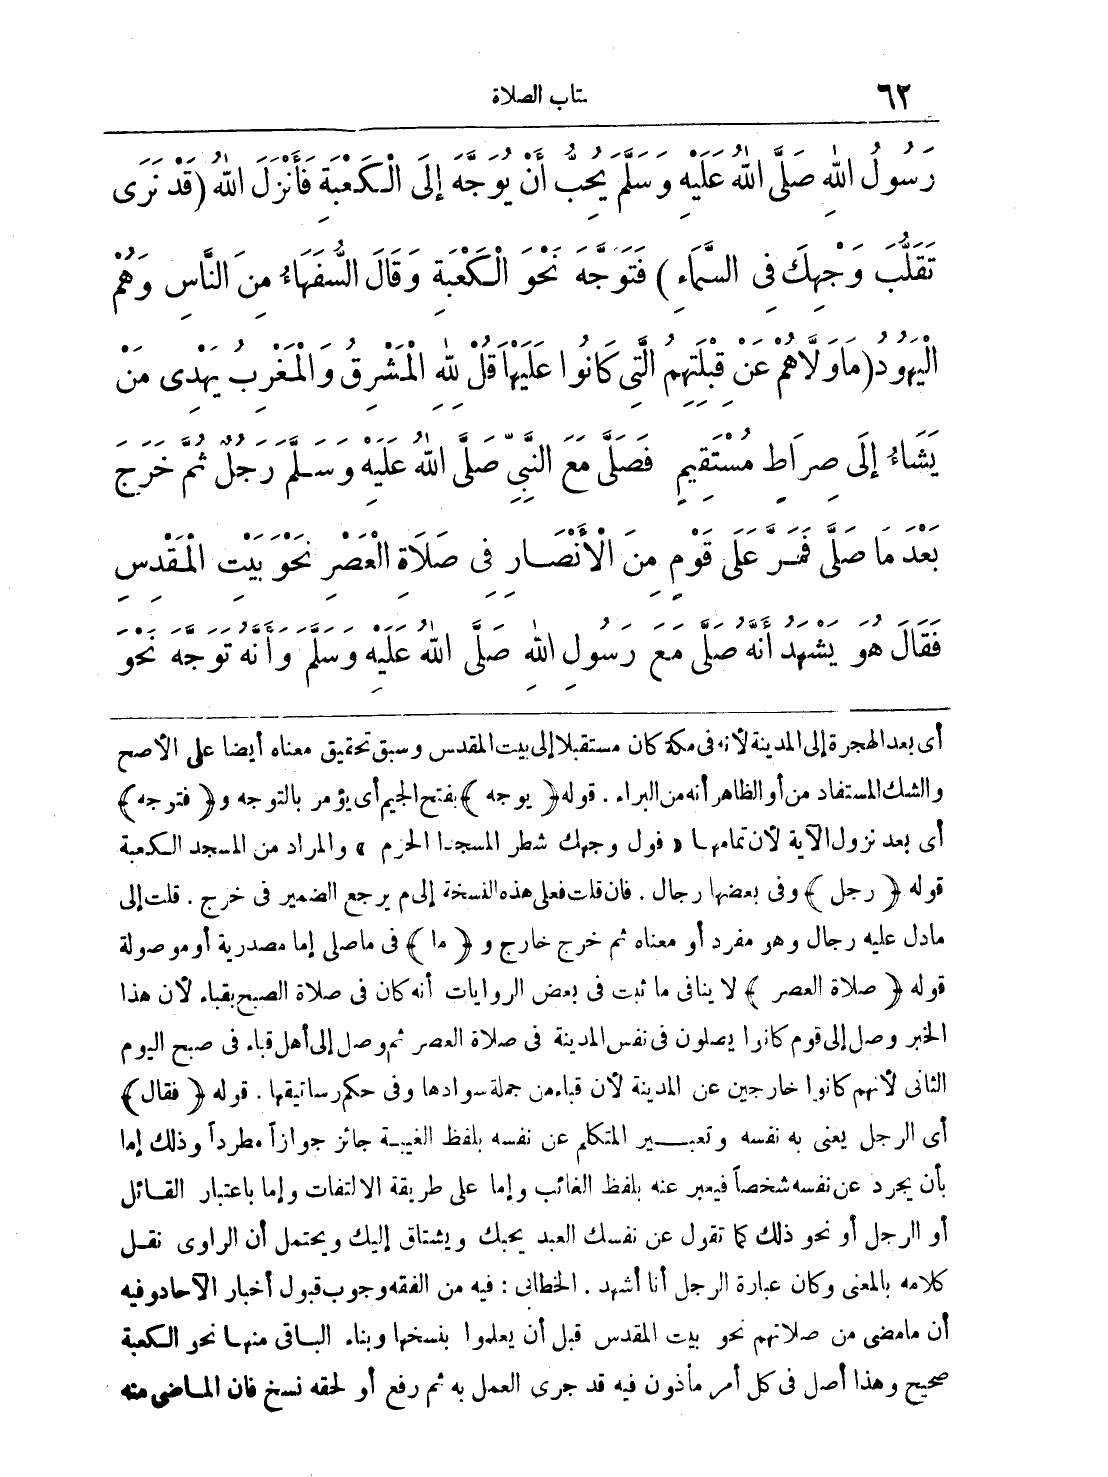 ٦٢
ستاب الصلاة
رَسُولُ اللهِ صَلَّى اللهُ عَلَيْهِ وَسَلَّمَ يُحِبُّ أَنْ يُوَجَّهَ إِلَى الْكَعْبَةِ فَأَنْزَلَ اللهُ (قَدْ نَرَى
تَقَلُّبَ وَجْهِكَ فِى السَّمَاءِ) فَتَوَجَّهَ نَحْوَ الْكَعْبَةِ وَقَالَ السُّفَهَاءُ مِنَ النَّاسِ وَهُمُ
الْيَهُودُ (مَاوَلَّاهُمْ عَنْ قِبْلَتِهِمُ الَّتِى كَانُوا عَلَيْهَا قُلْ لِلهِ الْمَشْرِقُ وَالْمَغْرِبُ يَهْدِى مَنْ
يَشَاءُ إِلَى صِرَاطٍ مُسْتَقِيمٍ فَصَلَّى مَعَ النَّبِىِّ صَلَّى اللهُ عَلَيْهِ وَسَلَّمَ رَجُلٌ ثُمَّ خَرَجَ
بَعْدَ مَا صَلَّى فَمَرَّ عَلَى قَوْمٍ مِنَ الْأَنْصَارِ فِى صَلَاةِ الْعَصْرِ نَحْوَ بَيْتِ الْمَقْدِسِ
فَقَالَ هُوَ يَشْهَدُ أَنَّهُ صَلَّى مَعَ رَسُولِ اللهِ صَلَّى اللهُ عَلَيْهِ وَسَلَّمَ وَأَنَّهُ تَوَجَّهَ نَحْوَ
أى بعد الهجرة إلى المدينة لأنه فى مكة كان مستقبلا إلى بيت المقدس وسبق تحقيق معناه أيضا على الأصح
والشك المستفاد من أو الظاهر أنه من البراء . قوله ﴿ يوجه ﴾ بفتح الجيم أى يؤمر بالتوجه و ﴿ فتوجه ﴾
أى بعد نزول الآية لأن تمامها « فول وجهك شطر المسجد الحرم » والمراد من المسجد الكعبة
قوله ﴿ رجل ﴾ وفى بعضها رجال . فان قلت فعلى هذه النسخة إلى م يرجع الضمير فى خرج . قلت إلى
مادل عليه رجال وهو مفرد أو معناه ثم خرج خارج و ﴿ ما ﴾ فى ماصلى إما مصدرية أو موصولة
قوله ﴿ صلاة العصر ﴾ لا ينافى ما ثبت فى بعض الروايات أنه كان فى صلاة الصبح بقباء لأن هذا
الخبر وصل إلى قوم كانوا يصلون فى نفس المدينة فى صلاة العصر ثم وصل إلى أهل قباء فى صبح اليوم
الثانى لأنهم كانوا خارجين عن المدينة لأن قباء من جملة سوادها وفى حكم رساتيقها . قوله ﴿ فقال ﴾
أى الرجل يعنى به نفسه وتعبير المتكلم عن نفسه بلفظ الغيبة جائز جوازاً مطرداً وذلك إما
بأن يجرد عن نفسه شخصاً فيعبر عنه بلفظ الغائب وإما على طريقة الالتفات وإما باعتبار القائل
أو الرجل أو نحو ذلك كما تقول عن نفسك العبد يحبك ويشتاق إليك ويحتمل أن الراوى نقل
كلامه بالمعنى وكان عبارة الرجل أنا أشهد . الخطابى : فيه من الفقه وجوب قبول أخبار الآحاد وفيه
أن مامضى من صلاتهم نحو بيت المقدس قبل أن يعلموا بنسخها وبناء الباقى منها نحو الكعبة
صحيح وهذا أصل فى كل أمر مأذون فيه قد جرى العمل به ثم رفع أو لحقه نسخ فان الماضى منه